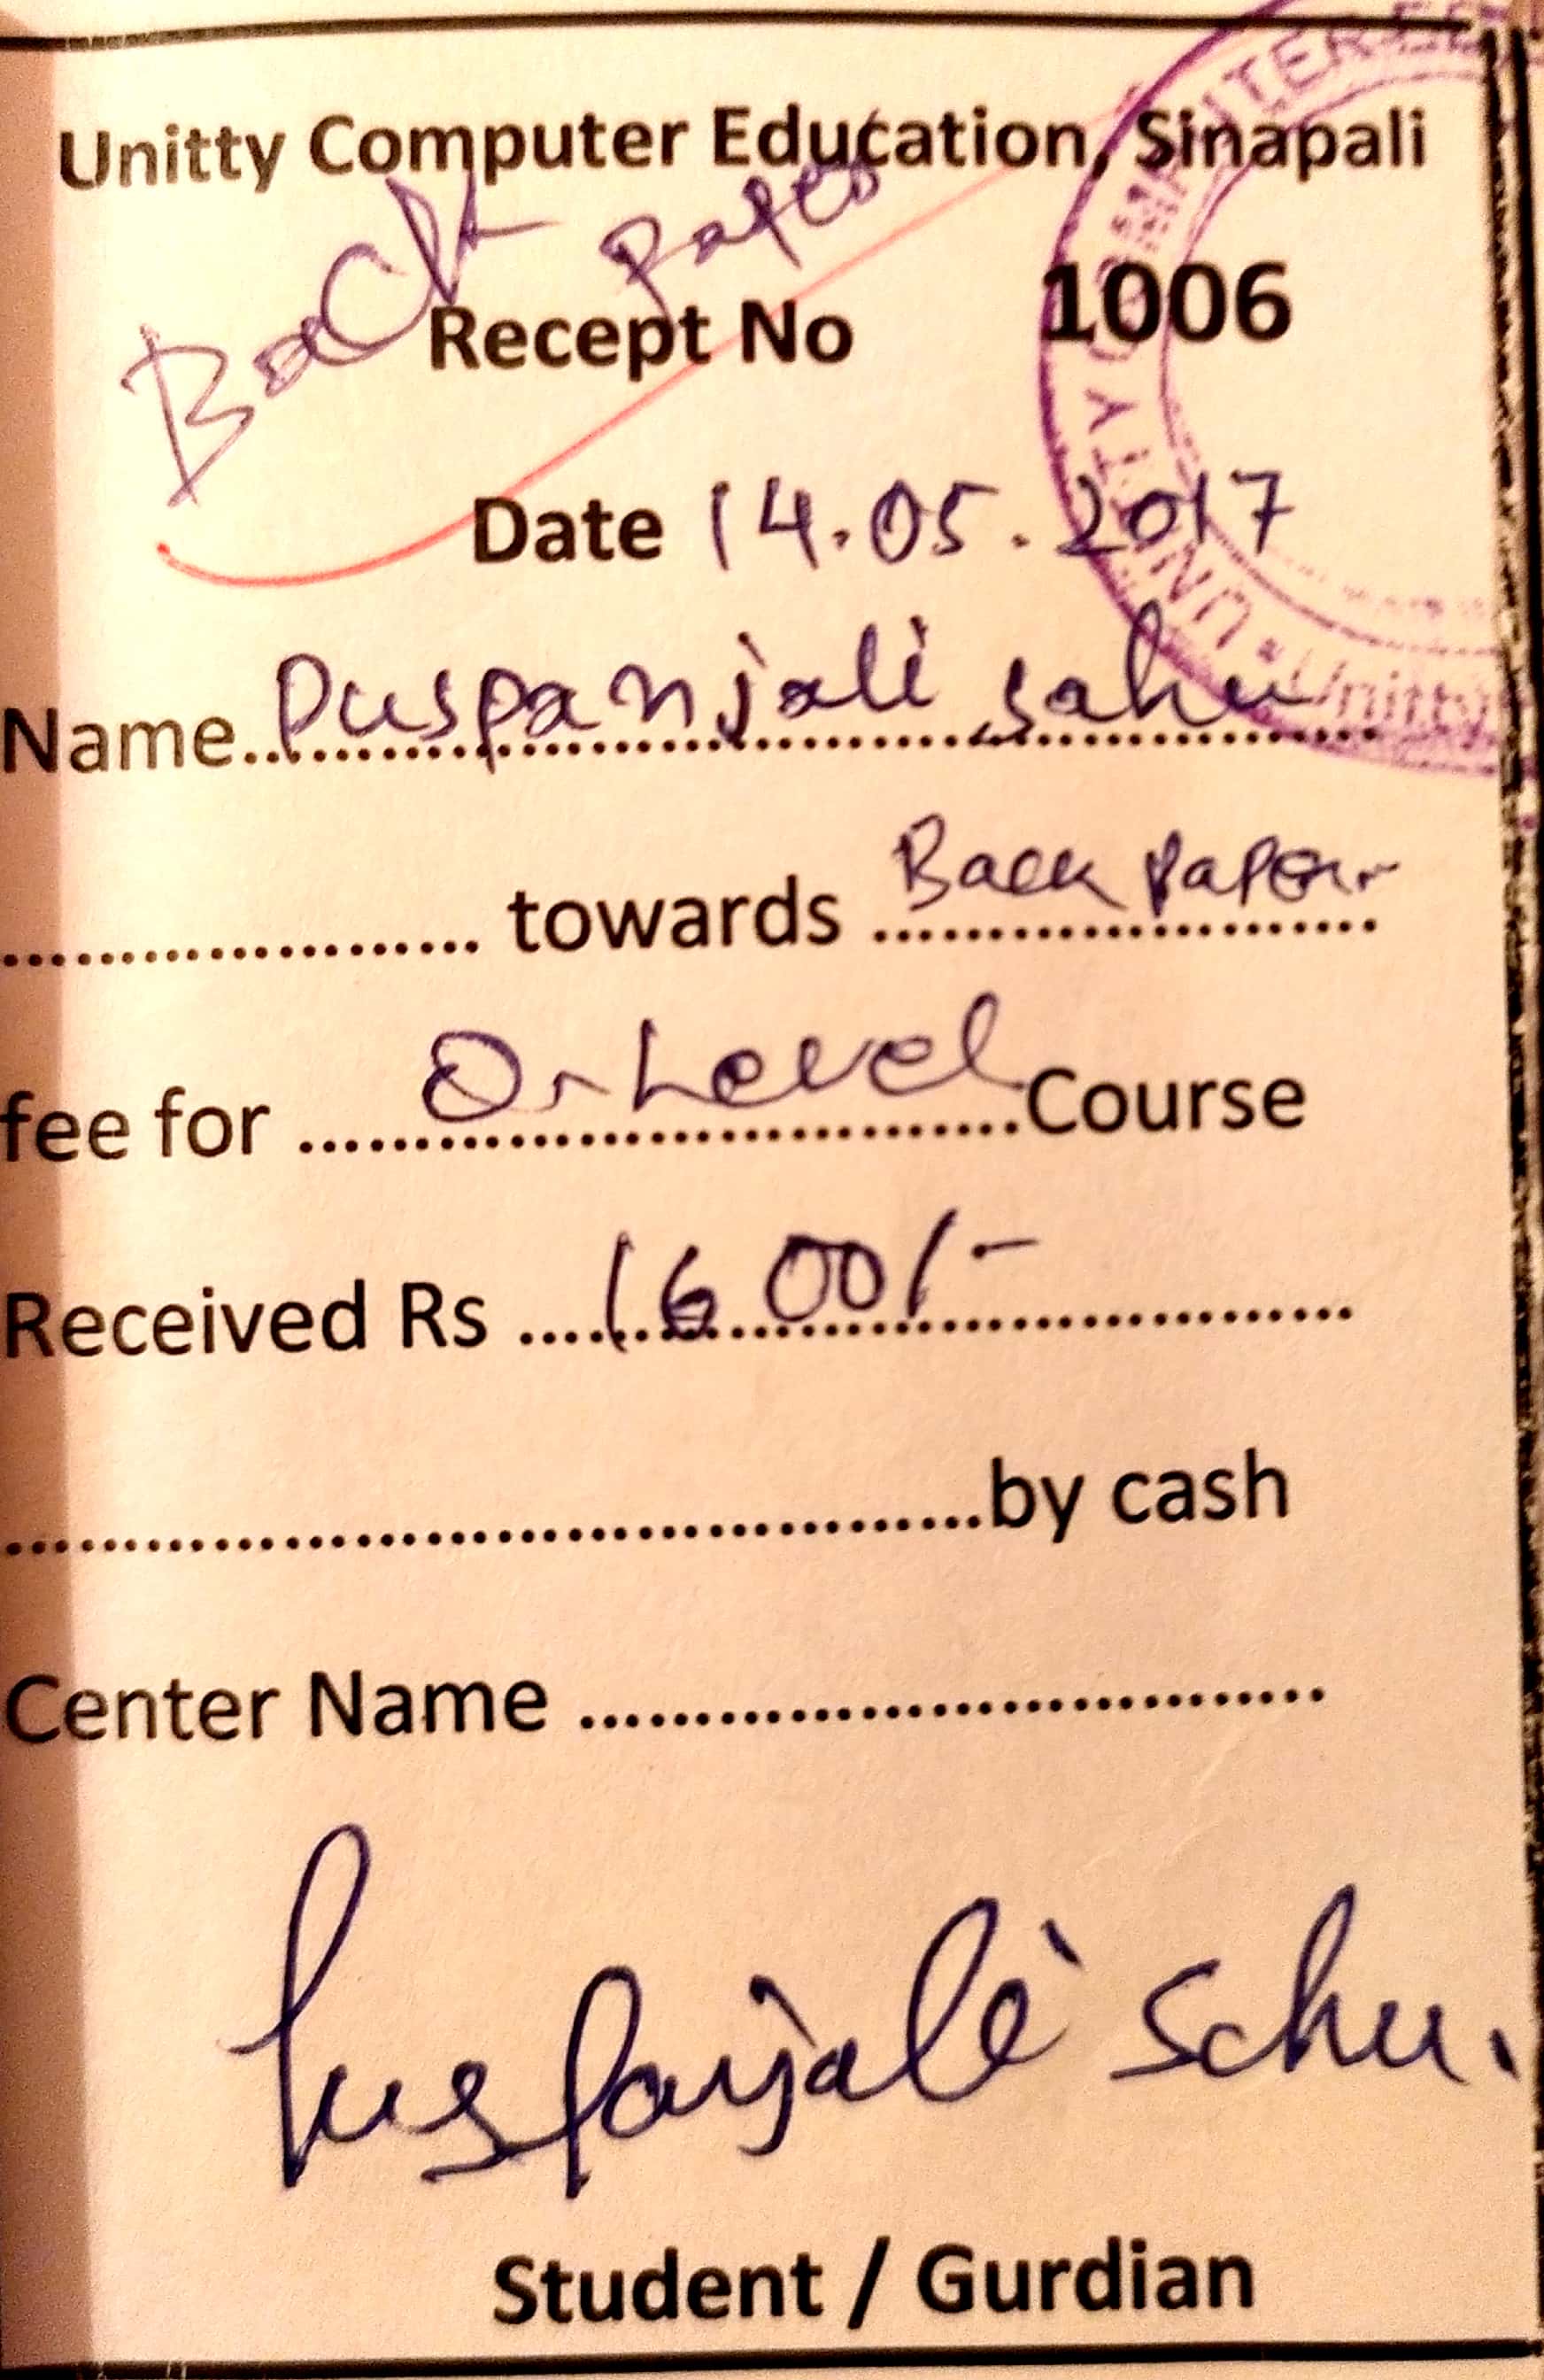 Unitty Computer Education, Sinapali
Back Paper
Recept No 1006
Date 14.05.2017
Name Puspanjali sahu
towards Back Paper
fee for O-Level Course
Received Rs 1600/-
by cash
Center Name
Puspanjali sahu.
Student / Gurdian
UNITY
Unitty